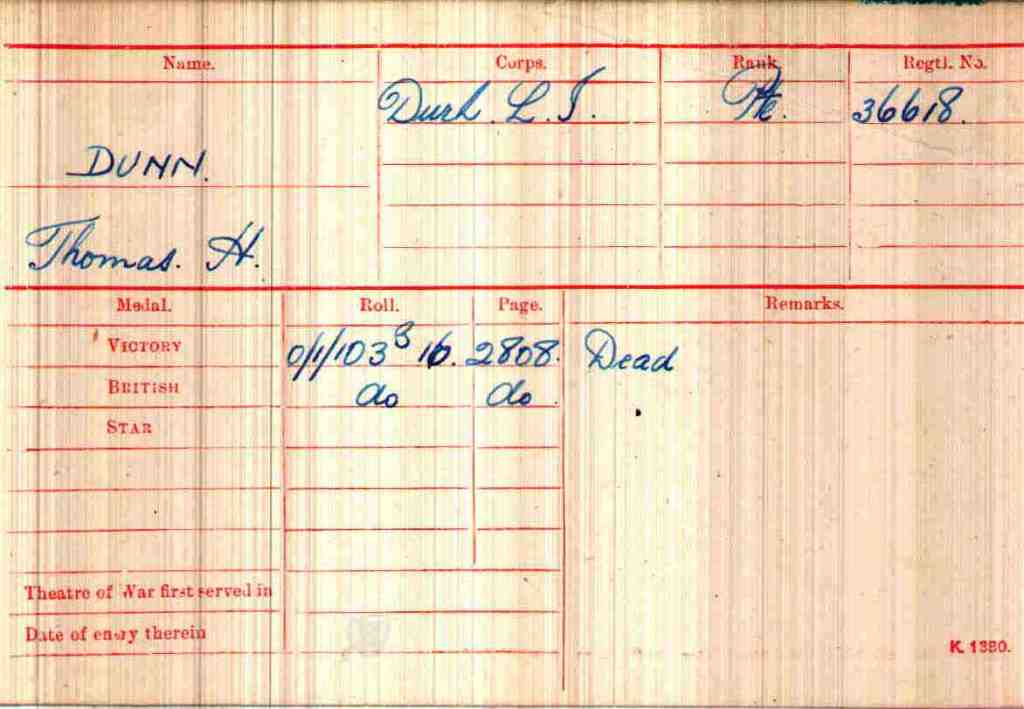 Name. Corps. Rank Regtl. No.
Durh. L. I. Pte. 36618.
DUNN.
Thomas. H.
Medal. Roll. Page. Remarks.
VICTORY 0/1/103 B 16. 2808. Dead
BRITISH do do.
STAR
Theatre of War first served in
Date of entry therein
K. 1380.